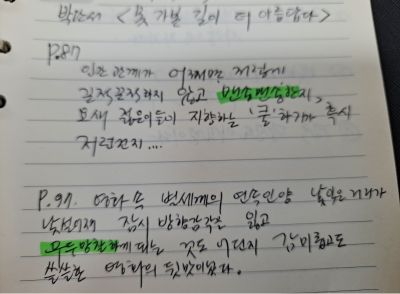 박완서 <못 가본 길이 더 아름답다>
P.87
인간관계가 어쩌면 저렇게
질척질척하지 않고 맨숭맨숭한지,
요새 젊은이들이 지향하는 '쿨'하기가 혹시
저런건지....
P.97. 영화 속 범세계의 연속인양 낯익은 거리가
낯설어져 잠시 방향감각을 잃고
우두망찰하게 되는 것도 어쩐지 감미롭고도
쓸쓸한 영화의 뒷맛이었다.